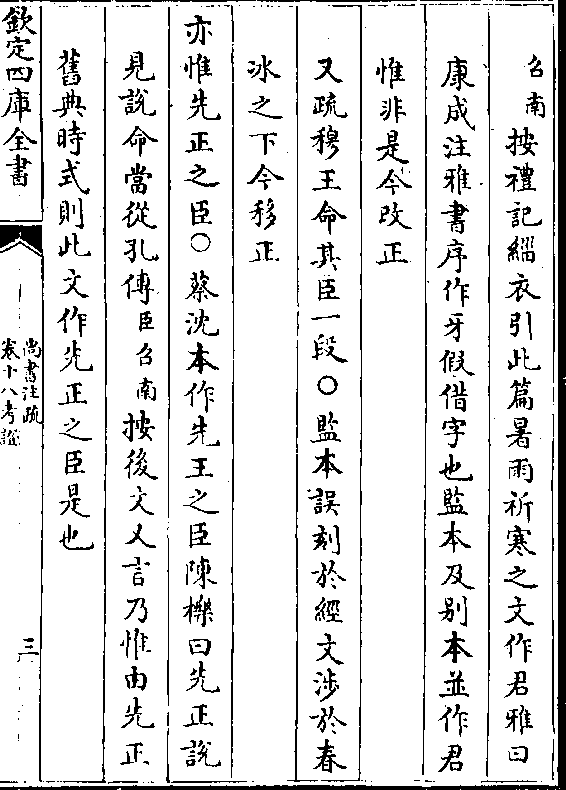 召南按禮記緇衣引此篇暑雨祈寒之文作君雅曰
康成注雅書序作牙假借字也監本及别本並作君
惟非是今改正
又疏穆王命其臣一段○監本誤刻於經文涉於春
冰之下今移正
亦惟先正之臣○蔡沈本作先王之臣陳櫟曰先正說
見說命當從孔傳臣召南按後文又言乃惟由先正
舊典時式則此文作先正之臣是也
欽定四庫全書
尚書注疏
卷十八考證
三